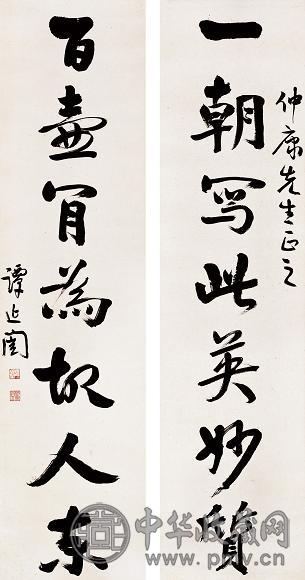 仲康先生正之
一朝写此英妙質
百壷肎為故人来
譚延闓
中华收藏网
www.pmlv.cn